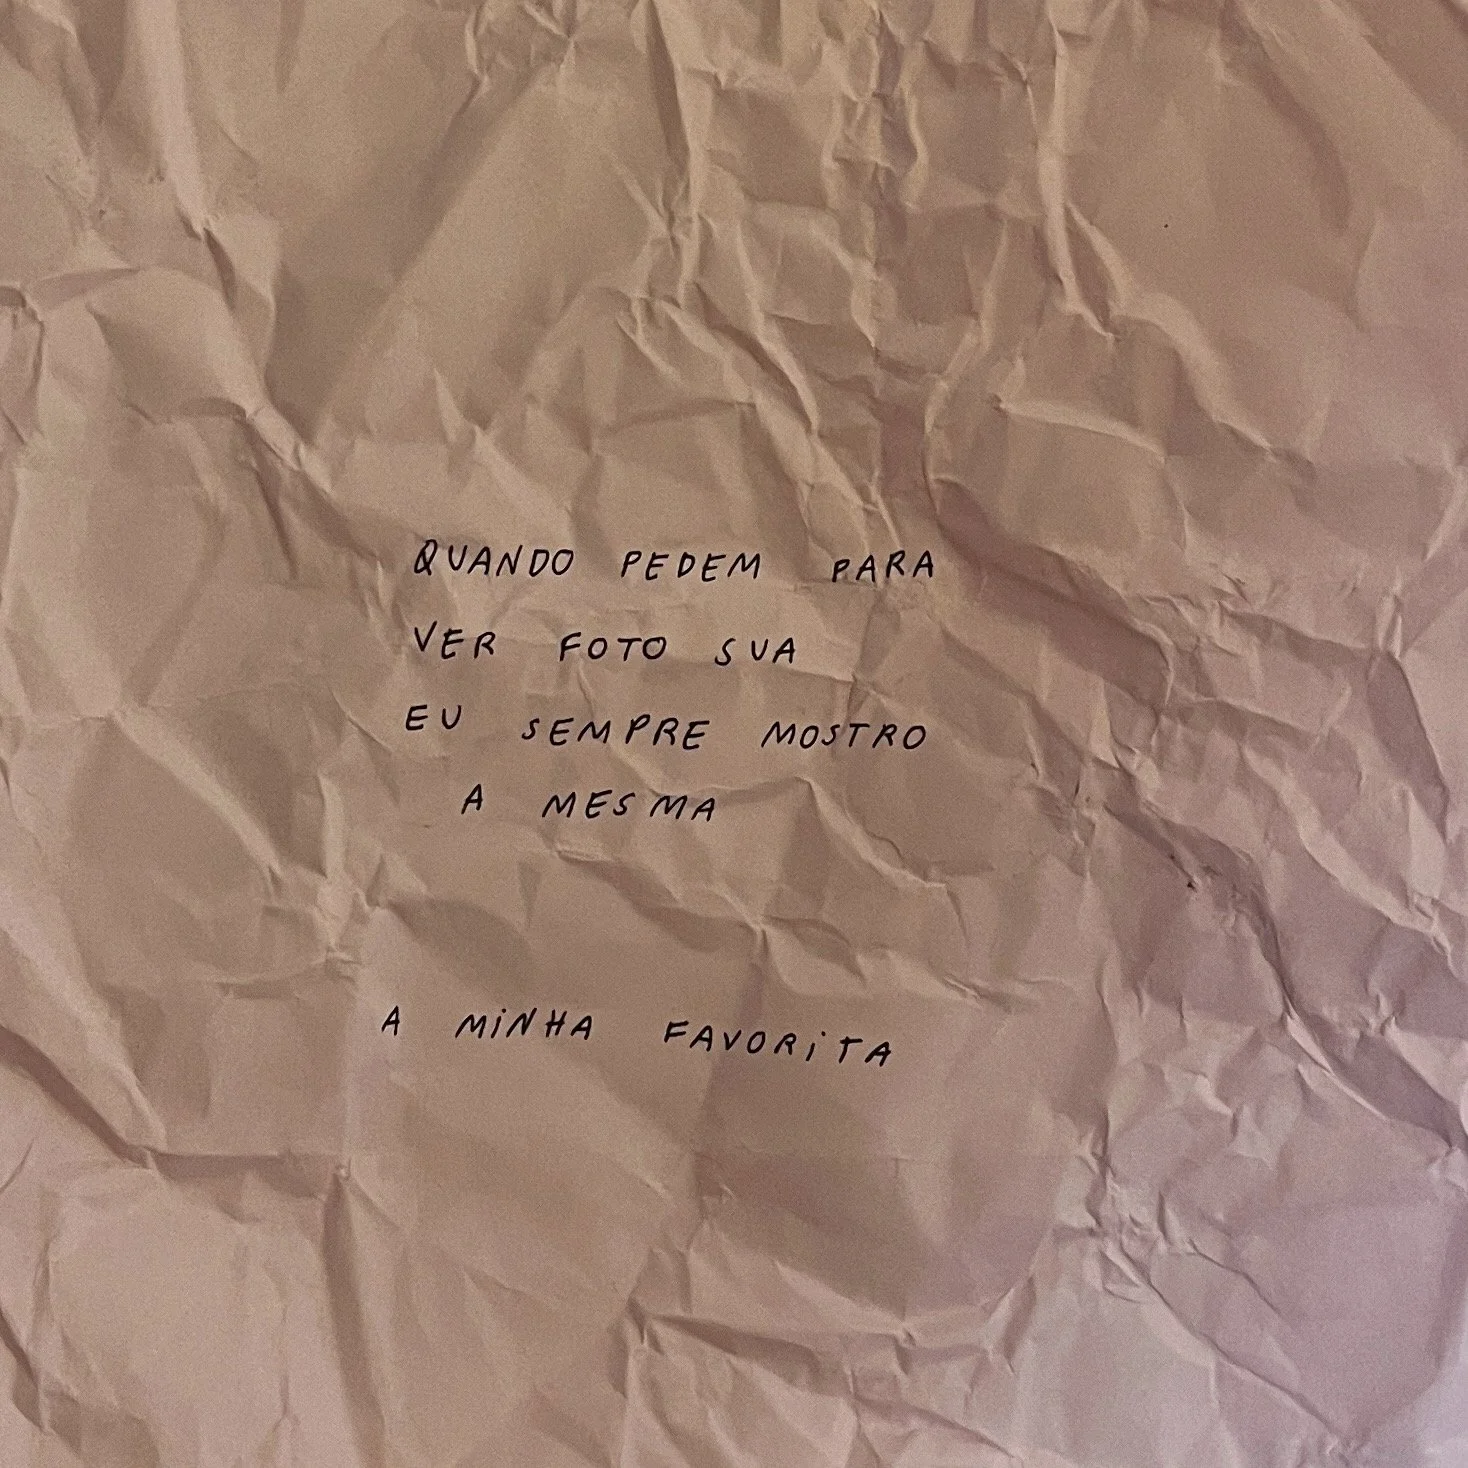 QUANDO PEDEM PARA
VER FOTO SUA
EU SEMPRE MOSTRO
A MESMA
A MINHA FAVORITA